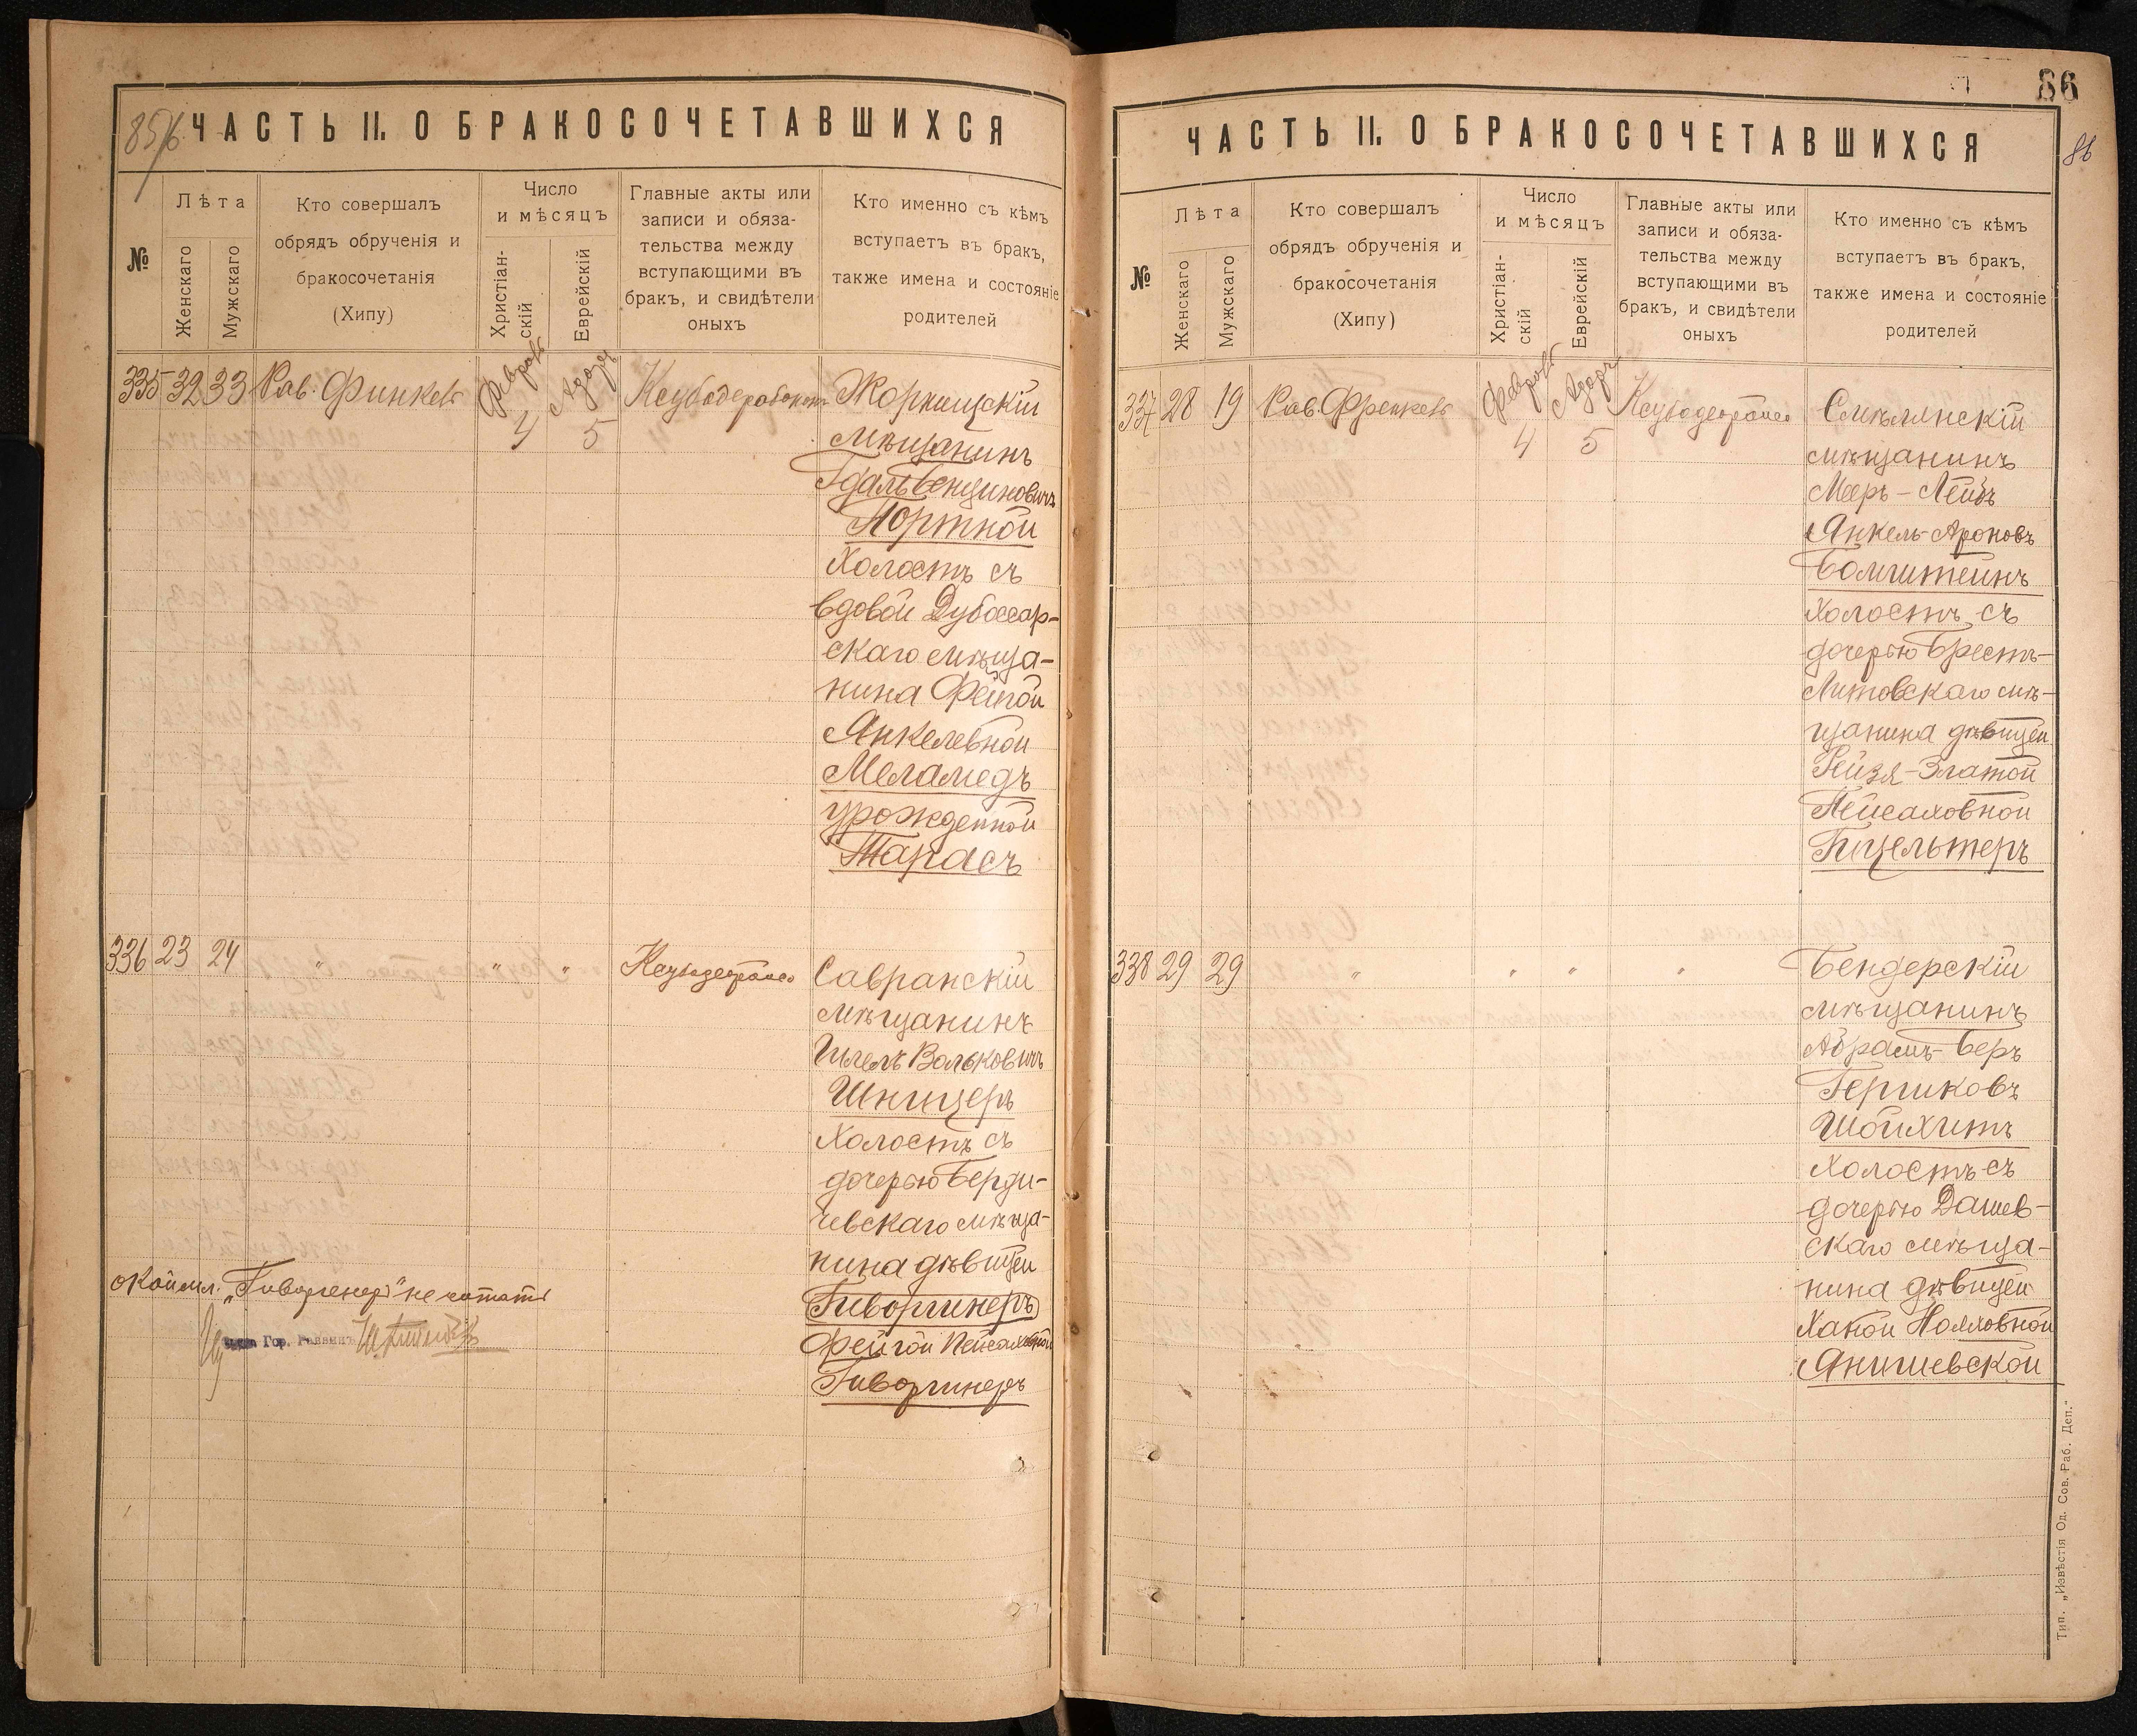 85/б
ЧАСТЬ II. О БРАКОСОЧЕТАВШИХСЯ
№
Лѣта
Женскаго
Мужскаго
Кто совершалъ
обрядъ обрученія и
бракосочетанія
(Хипу)
Число
и мѣсяцъ
Христіан-
скій
Еврейскій
Главные акты или
записи и обяза-
тельства между
вступающими въ
бракъ, и свидѣтели
оныхъ
Кто именно съ кѣмъ
вступаетъ въ бракъ,
также имена и состояніе
родителей
335 32 33 Рав.
4 5
мѣщанинъ
Портной
Холостъ съ
вдовой Дубоссар-
скаго мѣща-
нина Фейгой
Янкелевной
Меламедъ
урожденной
Тарасъ
336 23 24 " " "
Савранскій
мѣщанинъ
Шлема Вольковичъ
Шницеръ
Холостъ съ
дочерью Берди-
чевскаго мѣща-
нина дѣвицей
Гиворгинеръ
Фейгой Пейсаховной
Гиворгинеръ
не читать
Гор. Раввинъ
86
86
ЧАСТЬ II. О БРАКОСОЧЕТАВШИХСЯ
№
Лѣта
Женскаго
Мужскаго
Кто совершалъ
обрядъ обрученія и
бракосочетанія
(Хипу)
Число
и мѣсяцъ
Христіан-
скій
Еврейскій
Главные акты или
записи и обяза-
тельства между
вступающими въ
бракъ, и свидѣтели
оныхъ
Кто именно съ кѣмъ
вступаетъ въ бракъ,
также имена и состояніе
родителей
337 28 19 Рав.
4 5
Смѣлянскій
мѣщанинъ
Мееръ-Лейбъ
Янкель-Ароновъ
Холостъ съ
дочерью Брестъ-
Литовскаго мѣ-
щанина дѣвицей
Рейзя-Златой
Пейсаховной
338 29 29 " " " "
Бендерскій
мѣщанинъ
Абрамъ-Беръ
Гершковъ
Шойхитъ
Холостъ съ
дочерью Дашев-
скаго мѣща-
нина дѣвицей
Ханой
Янишевской
Тип. „Извѣстія Од. Сов. Раб. Деп."